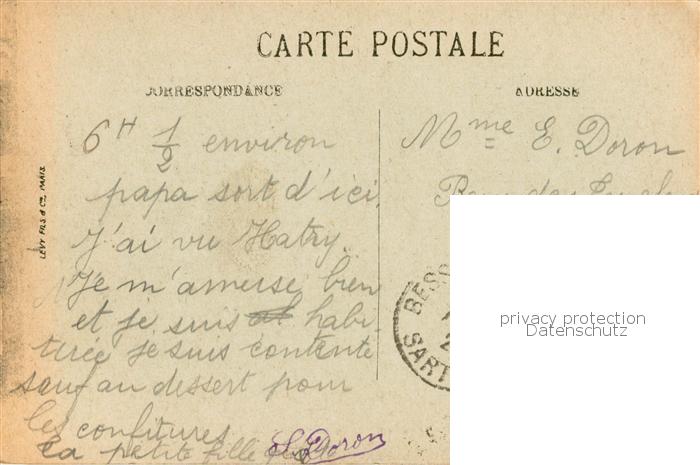 CARTE POSTALE
CORRESPONDANCE
ADRESSE
LÉVY FILS & Cie, PARIS
6H 1/2 environ
papa sort d'ici.
J'ai vu Hatry.
Je m'amuse bien
et je suis habi-
tuée je suis contente
sauf au dessert pour
les confitures
ta petite fille
Doron
Mme E. Doron
Rue
BESS
SART
privacy protection
Datenschutz